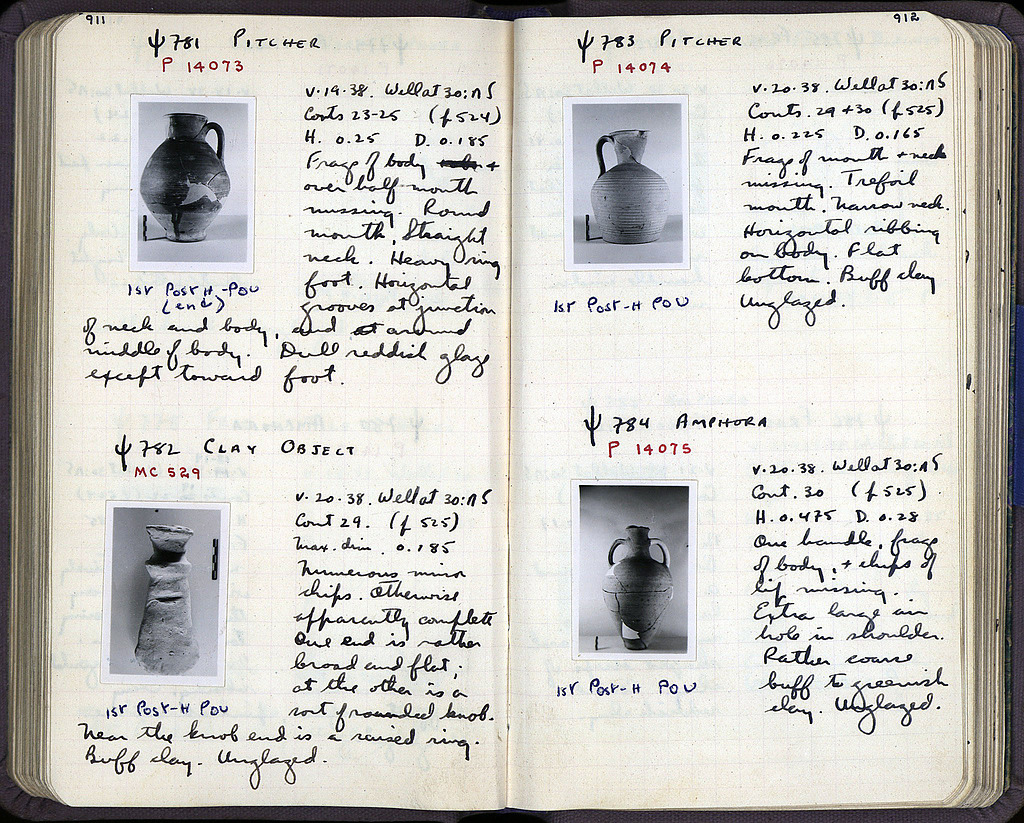 911
ψ 781 PITCHER
P 14073
V.19.38. Well at 30:NS
Conts 23-25 (f 524)
H. 0.25 D. 0.185
Frags of body +
over half mouth
missing. Round
mouth, straight
neck. Heavy ring
foot. Horizontal
grooves at junction
of neck and body, and around
middle of body. Dull reddish glaze
except toward foot.
1st POST H-POU
(end)
ψ 782 CLAY OBJECT
MC 529
V.20.38. Well at 30:NS
Cont 29. (f 525)
Max. dim. 0.185
Numerous minor
chips. Otherwise
apparently complete
One end is rather
broad and flat;
at the other is a
sort of rounded knob.
Near the knob end is a raised ring.
Buff clay. Unglazed.
1st POST-H POU
912
ψ 783 PITCHER
P 14074
V.20.38. Well at 30:NS
Conts. 29+30 (f 525)
H. 0.225 D. 0.165
Frags of mouth + neck
missing. Trefoil
mouth. Narrow neck.
Horizontal ribbing
on body. Flat
bottom. Buff clay
Unglazed.
1st POST-H POU
ψ 784 AMPHORA
P 14075
V.20.38. Well at 30:NS
Cont. 30 (f 525)
H. 0.475 D. 0.28
One handle, frags
of body, + chips of
lip missing.
Extra large air
hole in shoulder.
Rather coarse
buff to greenish
clay. Unglazed.
1st POST-H POU